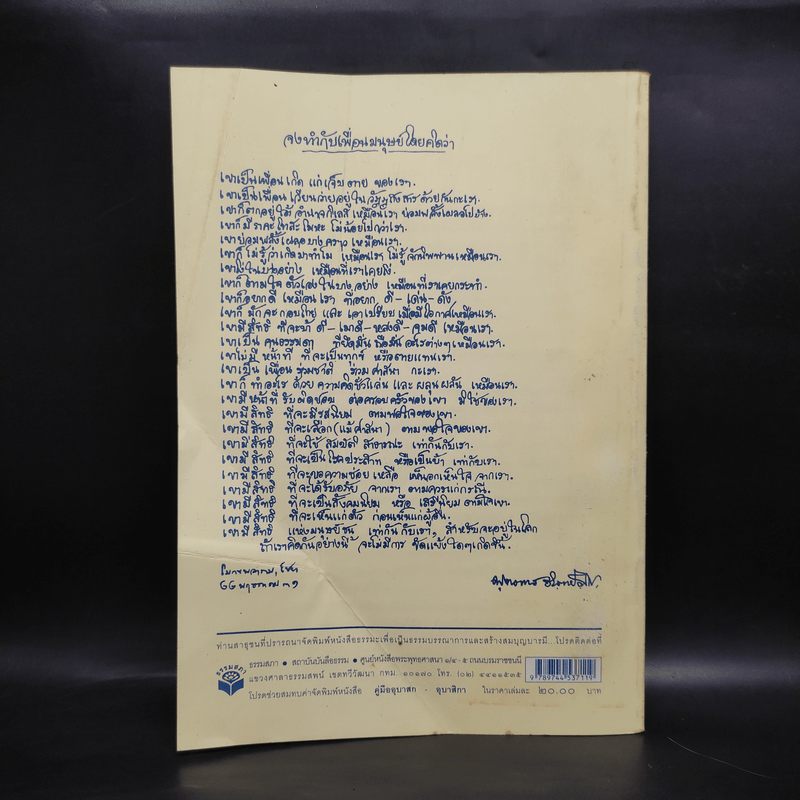 จงทำกับเพื่อนมนุษย์โดยคิดว่า
เขาเป็นเพื่อน เกิด แก่ เจ็บ ตาย ของเรา.
เขาเป็นเพื่อน เวียนว่ายอยู่ใน วัฏฏสงสาร ด้วยกันกะเรา.
เขาก็ตกอยู่ใต้ อำนาจกิเลส เหมือนเรา ย่อมพลั้งเผลอไปบ้าง.
เขาก็มี ราคะ โทสะ โมหะ ไม่น้อยไปกว่าเรา.
เขาย่อมพลั้งเผลอบางคราว เหมือนเรา.
เขาก็ ไม่รู้ว่าเกิดมาทำไม เหมือนเรา ไม่รู้จักนิพพานเหมือนเรา.
เขาโง่ในบางอย่าง เหมือนที่เราเคยโง่.
เขาก็ตามใจ ตัวเองในบางอย่าง เหมือนที่เราเคยกระทำ.
เขาก็อยากดี เหมือนเรา ที่อยาก ดี - เด่น - ดัง
เขาก็ มักจะกอบโกย และ เอาเปรียบ เมื่อมีโอกาสเหมือนเรา.
เขามีสิทธิ ที่จะบ้า ดี - เมาดี - หลงดี - จมดี เหมือนเรา.
เขาเป็น คนธรรมดา ที่ยึดมั่น ถือมั่น อะไรต่างๆ เหมือนเรา.
เขาไม่มี หน้าที่ ที่จะเป็นทุกข์ หรือตายแทนเรา.
เขาเป็น เพื่อน ร่วมชาติ ร่วม ศาสนา กะเรา.
เขาก็ ทำอะไร ด้วย ความคิดชั่วแล่น และ ผลุนผลัน เหมือนเรา.
เขามีหน้าที่ รับผิดชอบ ต่อครอบครัวของเขา มิใช่ของเรา.
เขามีสิทธิ ที่จะมีรสนิยม ตามพอใจของเขา.
เขามีสิทธิ ที่จะเลือก (แม้ศาสนา) ตามพอใจของเขา.
เขามีสิทธิ ที่จะใช้ สมบัติ สาธารณะ เท่ากันกับเรา.
เขามีสิทธิ ที่จะเป็น โรคประสาท หรือเป็นบ้า เท่ากับเรา.
เขามีสิทธิ ที่จะขอความช่วยเหลือ เห็นอกเห็นใจ จากเรา.
เขามีสิทธิ ที่จะได้รับอภัย จากเรา ตามควรแก่กรณี.
เขามีสิทธิ ที่จะเป็นสังคมนิยม หรือ เสรีนิยม ตามใจเขา.
เขามีสิทธิ ที่จะเห็นแก่ตัว ก่อนเห็นแก่ผู้อื่น.
เขามีสิทธิ แห่งมนุษย์ชน เท่ากันกับเรา, สำหรับจะอยู่ในโลก
ถ้าเราคิดกันอย่างนี้ จะไม่มีการ ขัดแย้งใดๆ เกิดขึ้น.
โมกขพลาราม, ไชยา
๒๒ พฤษภาคม ๓๑
พุทธทาส อินทปัญโญ.
ท่านสาธุชนที่ปรารถนาจัดพิมพ์หนังสือธรรมะเพื่อเป็นธรรมบรรณาการและสร้างสมบุญบารมี...โปรดติดต่อที่
ธรรมสภา
ธรรมสภา • สถาบันบันลือธรรม • ศูนย์หนังสือพระพุทธศาสนา ๑/๔ - ๕ ถนนบรมราชชนนี
แขวงศาลาธรรมสพน์ เขตทวีวัฒนา กทม. ๑๐๑๗๐ โทร. (๐๒) ๔๔๑๑๕๓๕
โปรดช่วยสมทบค่าจัดพิมพ์หนังสือ คู่มืออุบาสก - อุบาสิกา ในราคาเล่มละ ๒๐.๐๐ บาท
9 789744 537119